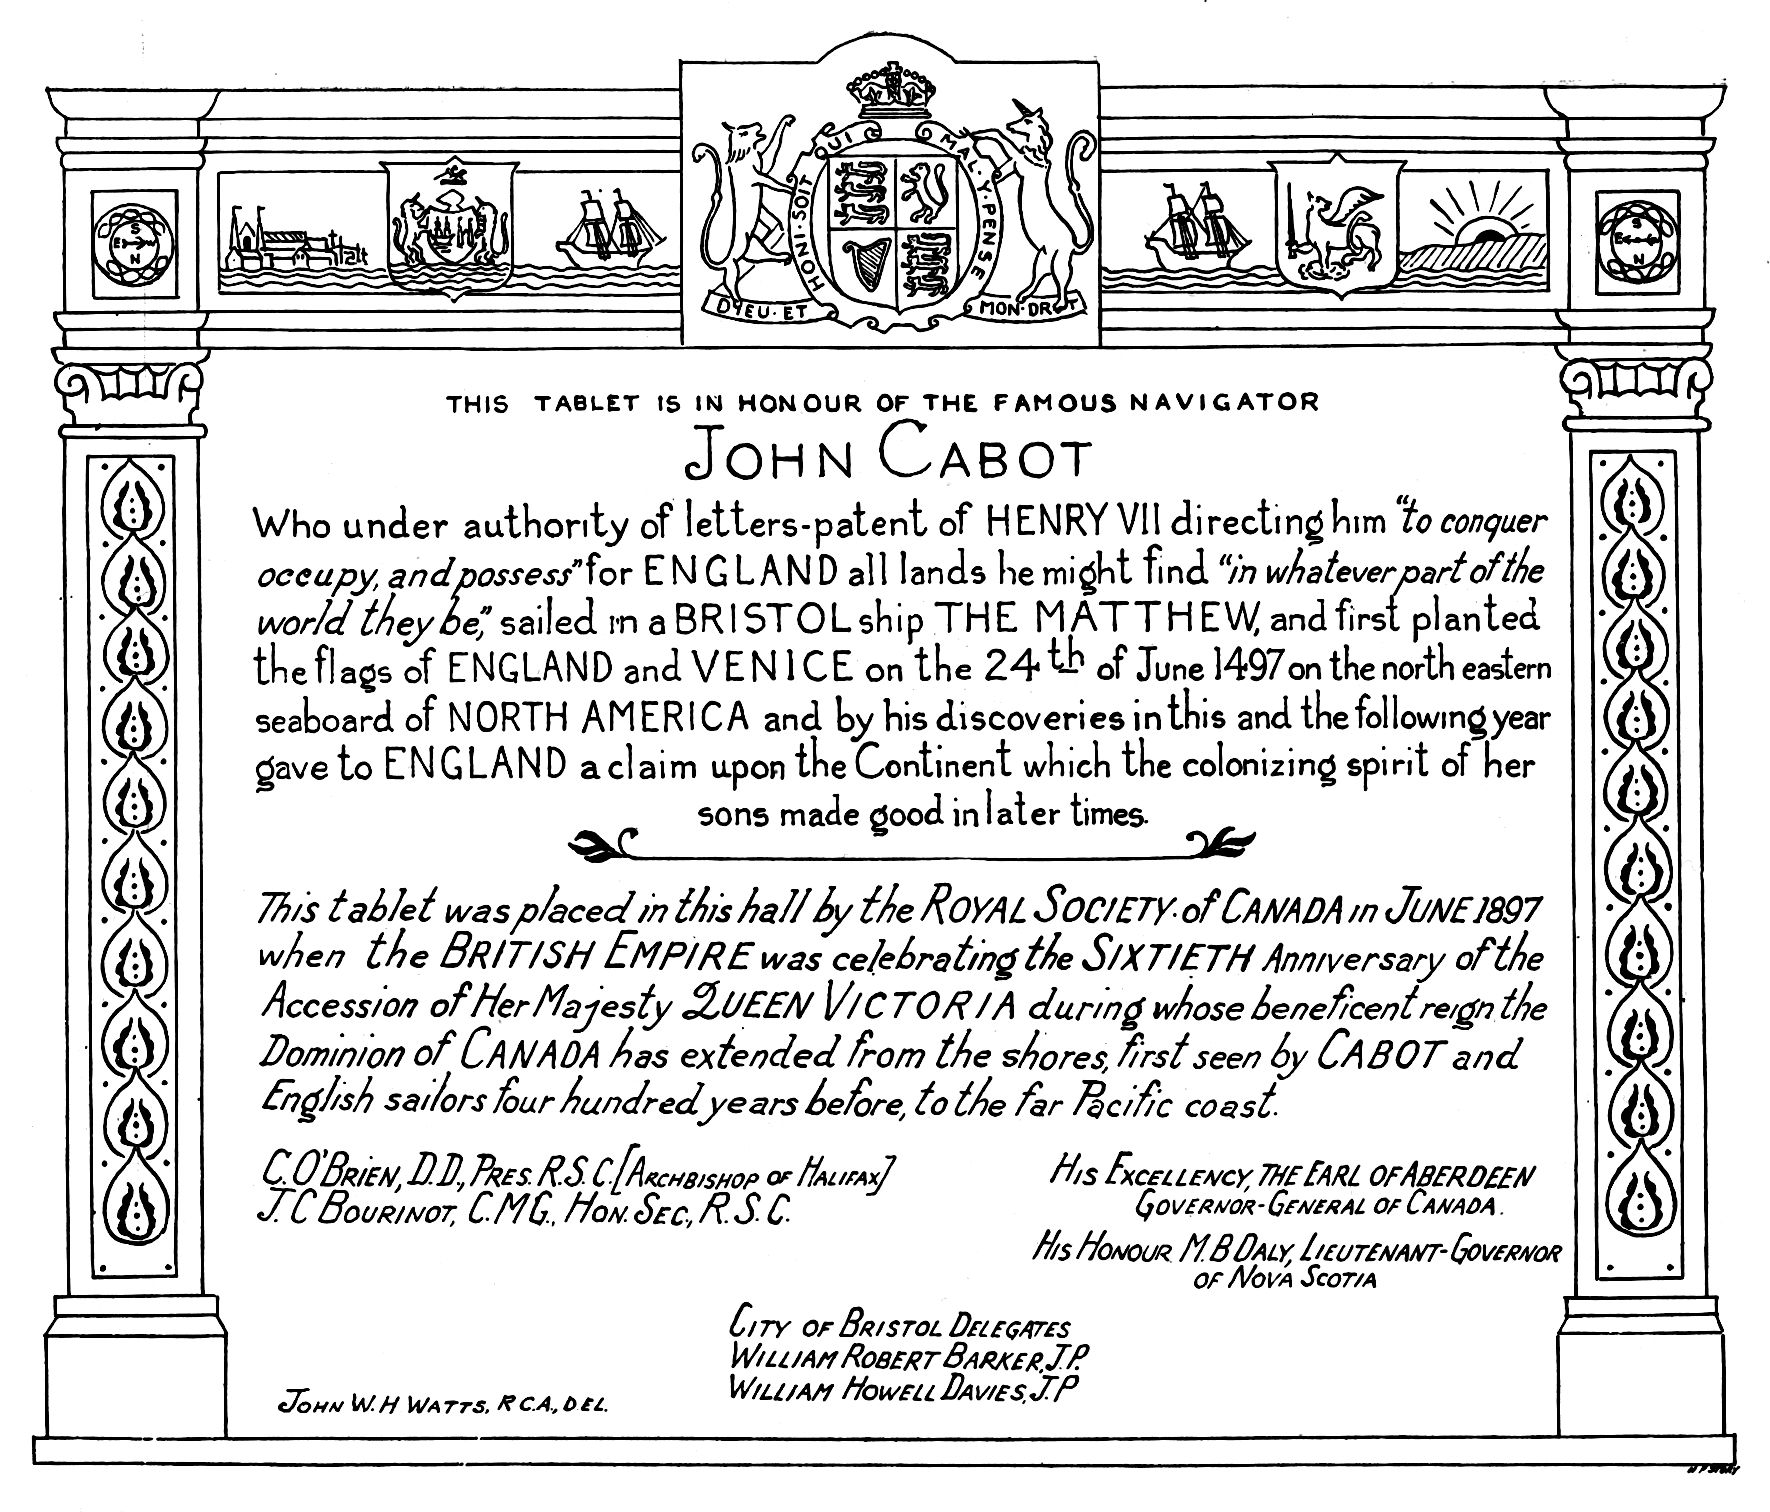 HONI·SOIT·QUI·MAL·Y·PENSE
DIEU·ET MON·DROIT
S
E W
N
S
E
N
THIS TABLET IS IN HONOUR OF THE FAMOUS NAVIGATOR
JOHN CABOT
Who under authority of letters-patent of HENRY VII directing him "to conquer
occupy, and possess" for ENGLAND all lands he might find "in whatever part of the
world they be," sailed in a BRISTOL ship THE MATTHEW, and first planted
the flags of ENGLAND and VENICE on the 24th of June 1497 on the north eastern
seaboard of NORTH AMERICA and by his discoveries in this and the following year
gave to ENGLAND a claim upon the Continent which the colonizing spirit of her
sons made good in later times.
This tablet was placed in this hall by the ROYAL SOCIETY·of CANADA in JUNE 1897
when the BRITISH EMPIRE was celebrating the SIXTIETH Anniversary of the
Accession of Her Majesty QUEEN VICTORIA during whose beneficent reign the
Dominion of CANADA has extended from the shores, first seen by CABOT and
English sailors four hundred years before, to the far Pacific coast.
C. O'BRIEN, D.D., PRES. R.S.C. [ARCHBISHOP OF HALIFAX]
J. C BOURINOT, C.M.G., HON. SEC., R.S.C.
HIS EXCELLENCY, THE EARL OF ABERDEEN
GOVERNOR-GENERAL OF CANADA.
HIS HONOUR M.B DALY, LIEUTENANT-GOVERNOR
OF NOVA SCOTIA
CITY OF BRISTOL DELEGATES
WILLIAM ROBERT BARKER, J.P.
WILLIAM HOWELL DAVIES, J.P
JOHN W. H WATTS, R C.A., DEL.